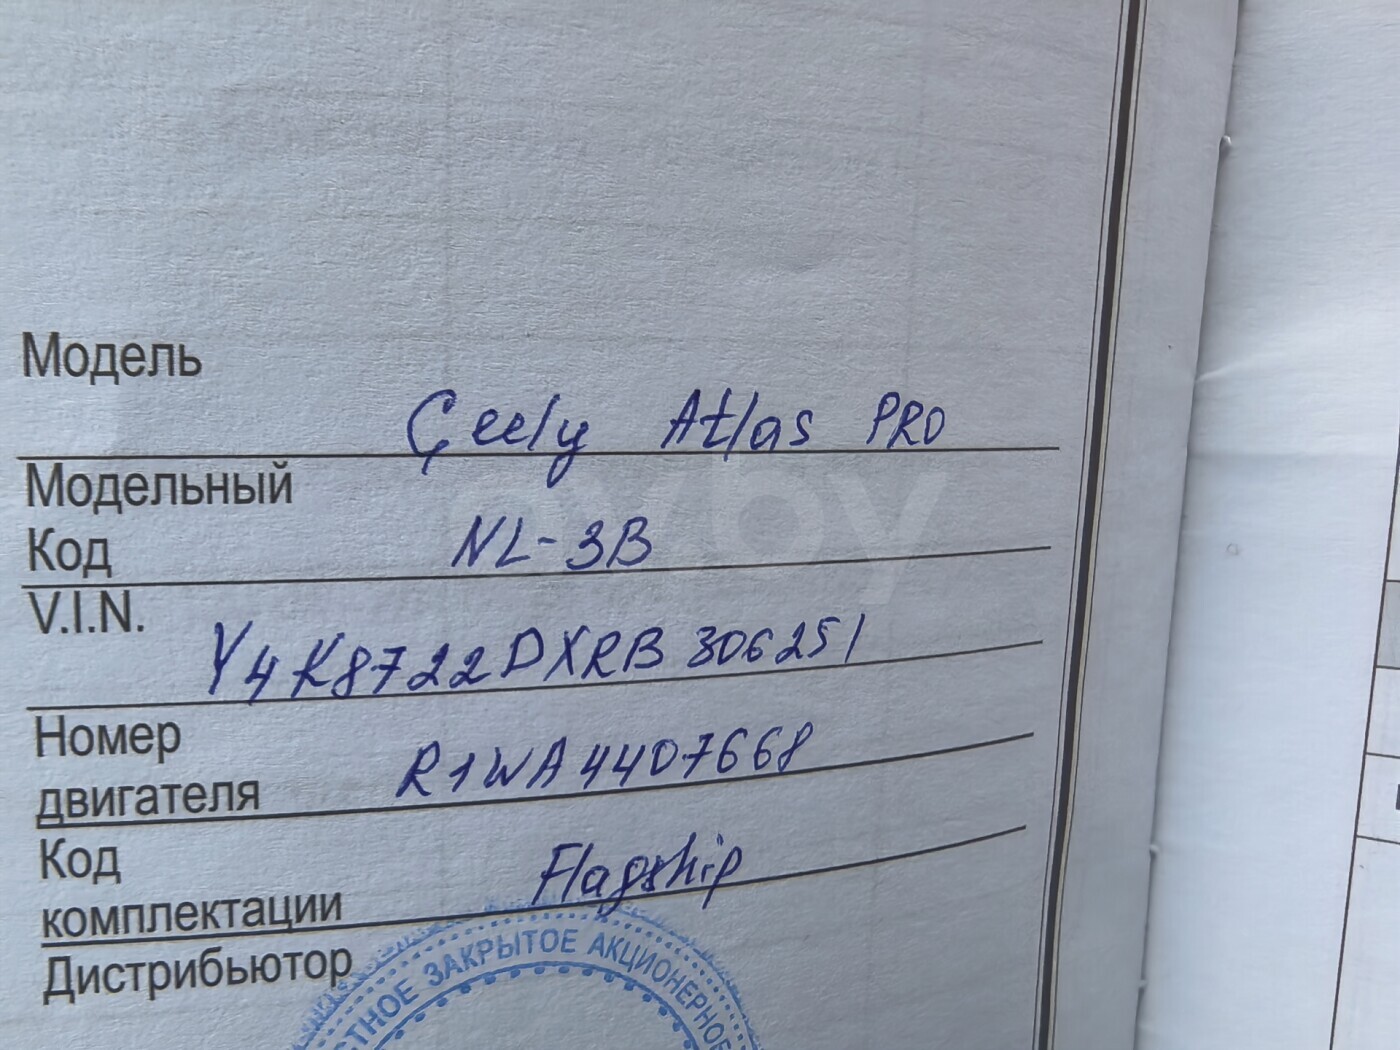 Модель
Geely Atlas PRO
Модельный
Код NL-3B
V.I.N.
Y4K8722DXRB306251
Номер
двигателя R1WA4407668
Код
комплектации Flagship
Дистрибьютор
СТНОЕ ЗАКРЫТОЕ АКЦИОНЕРНОЕ